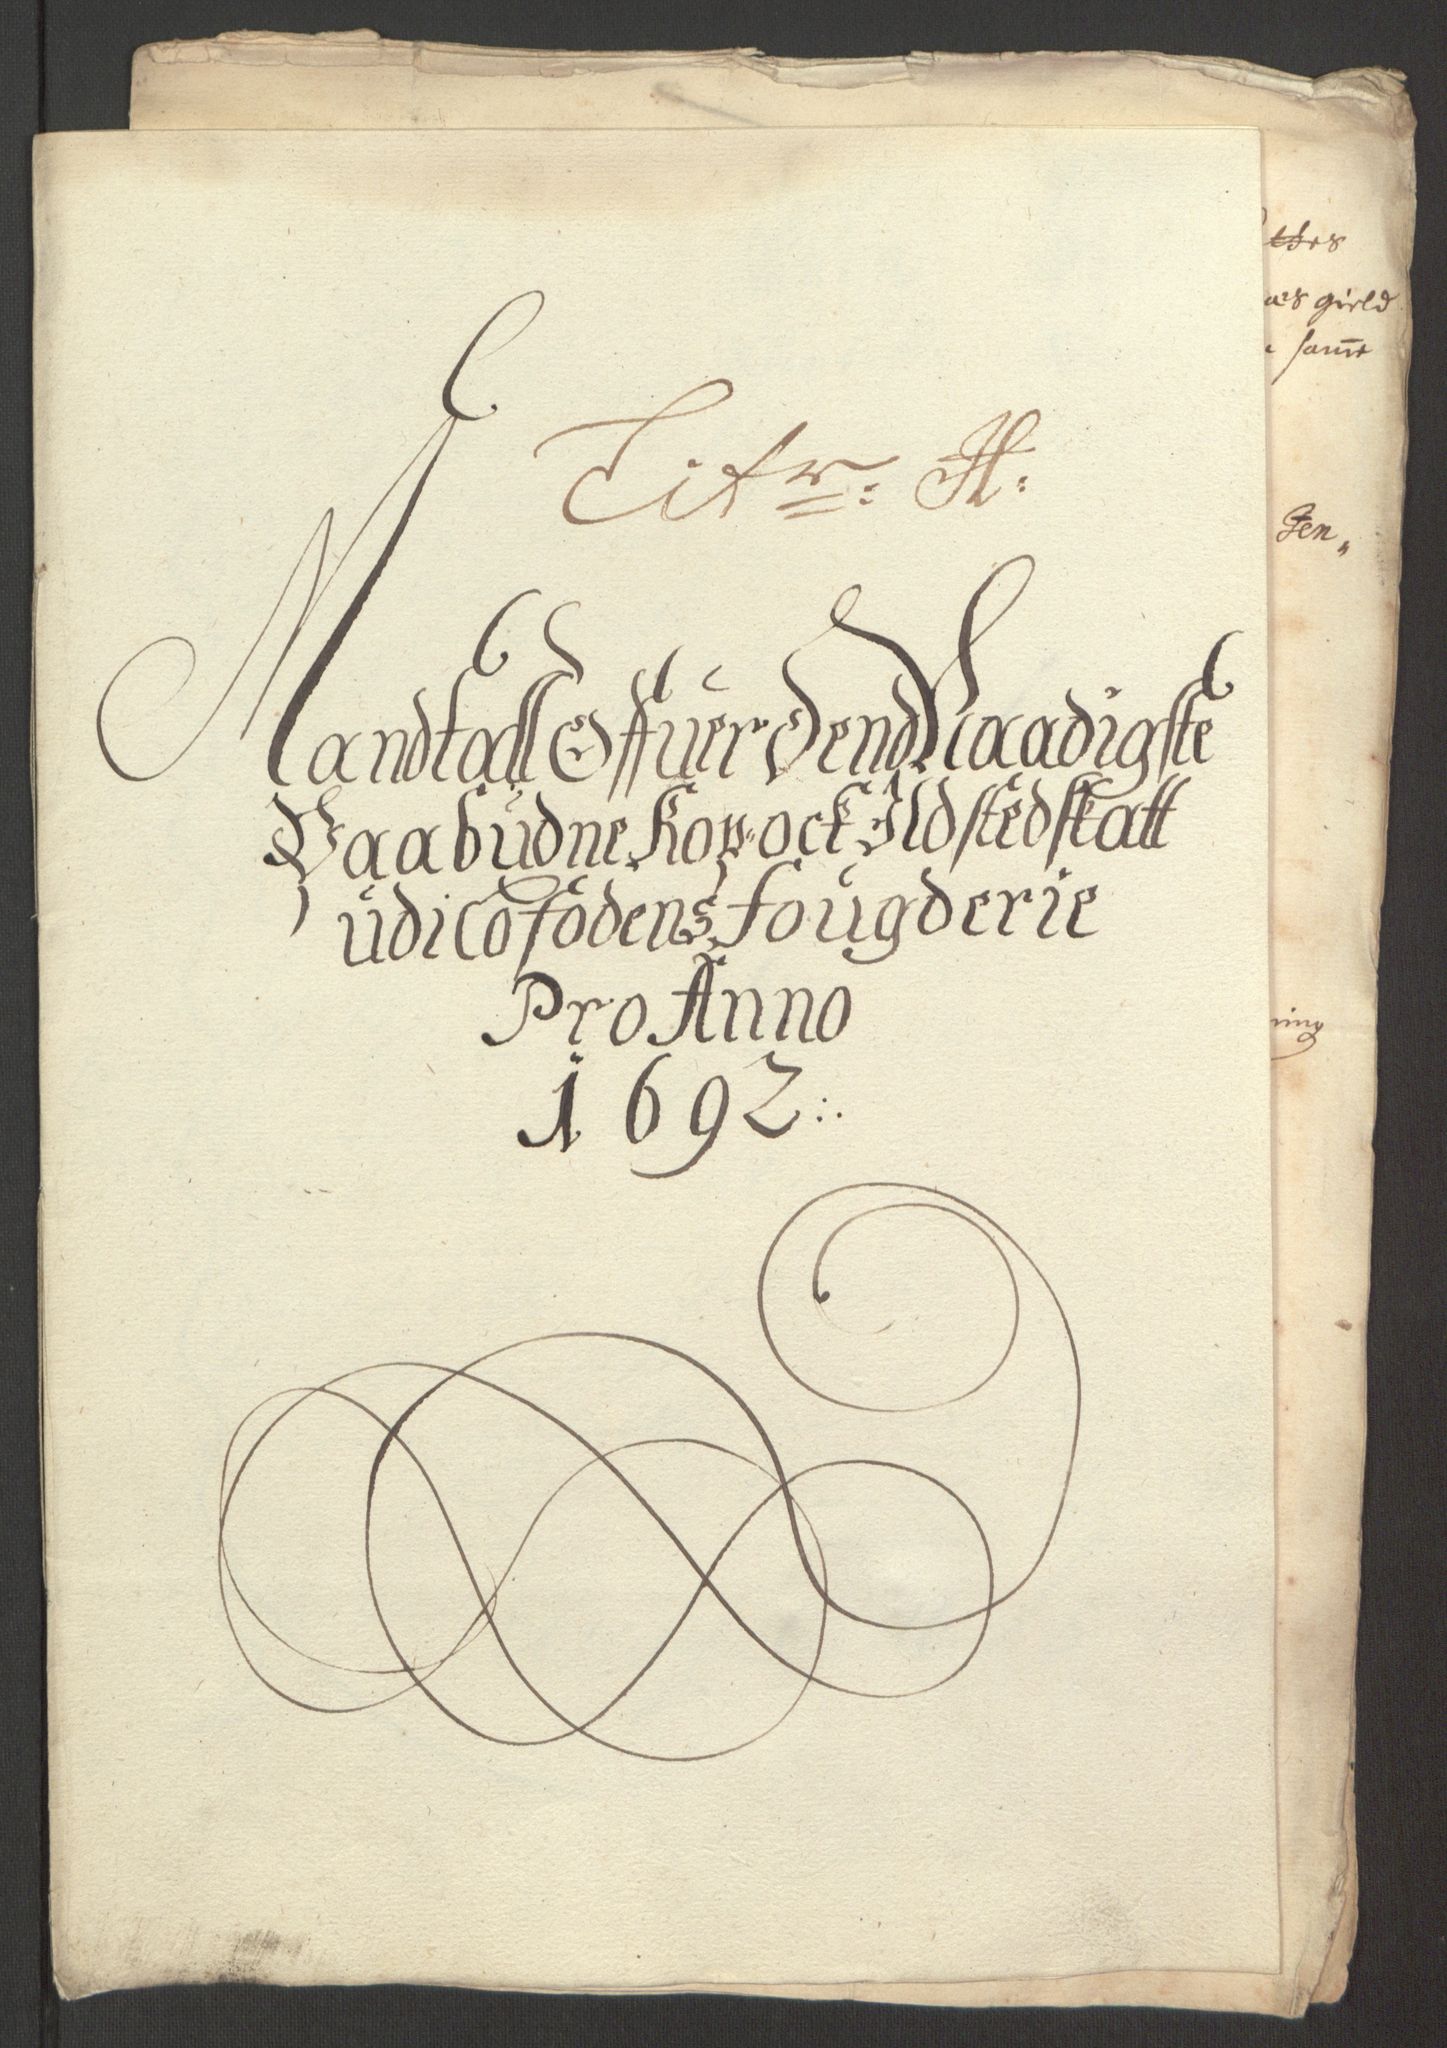 Litr: A:
Mandtall Offuer Dend Naadigste
Paabudne Kop- ock Ildstedskatt
udi Lofodens Fougderie
Pro Anno
1692
girld
samt
Gen„
ning